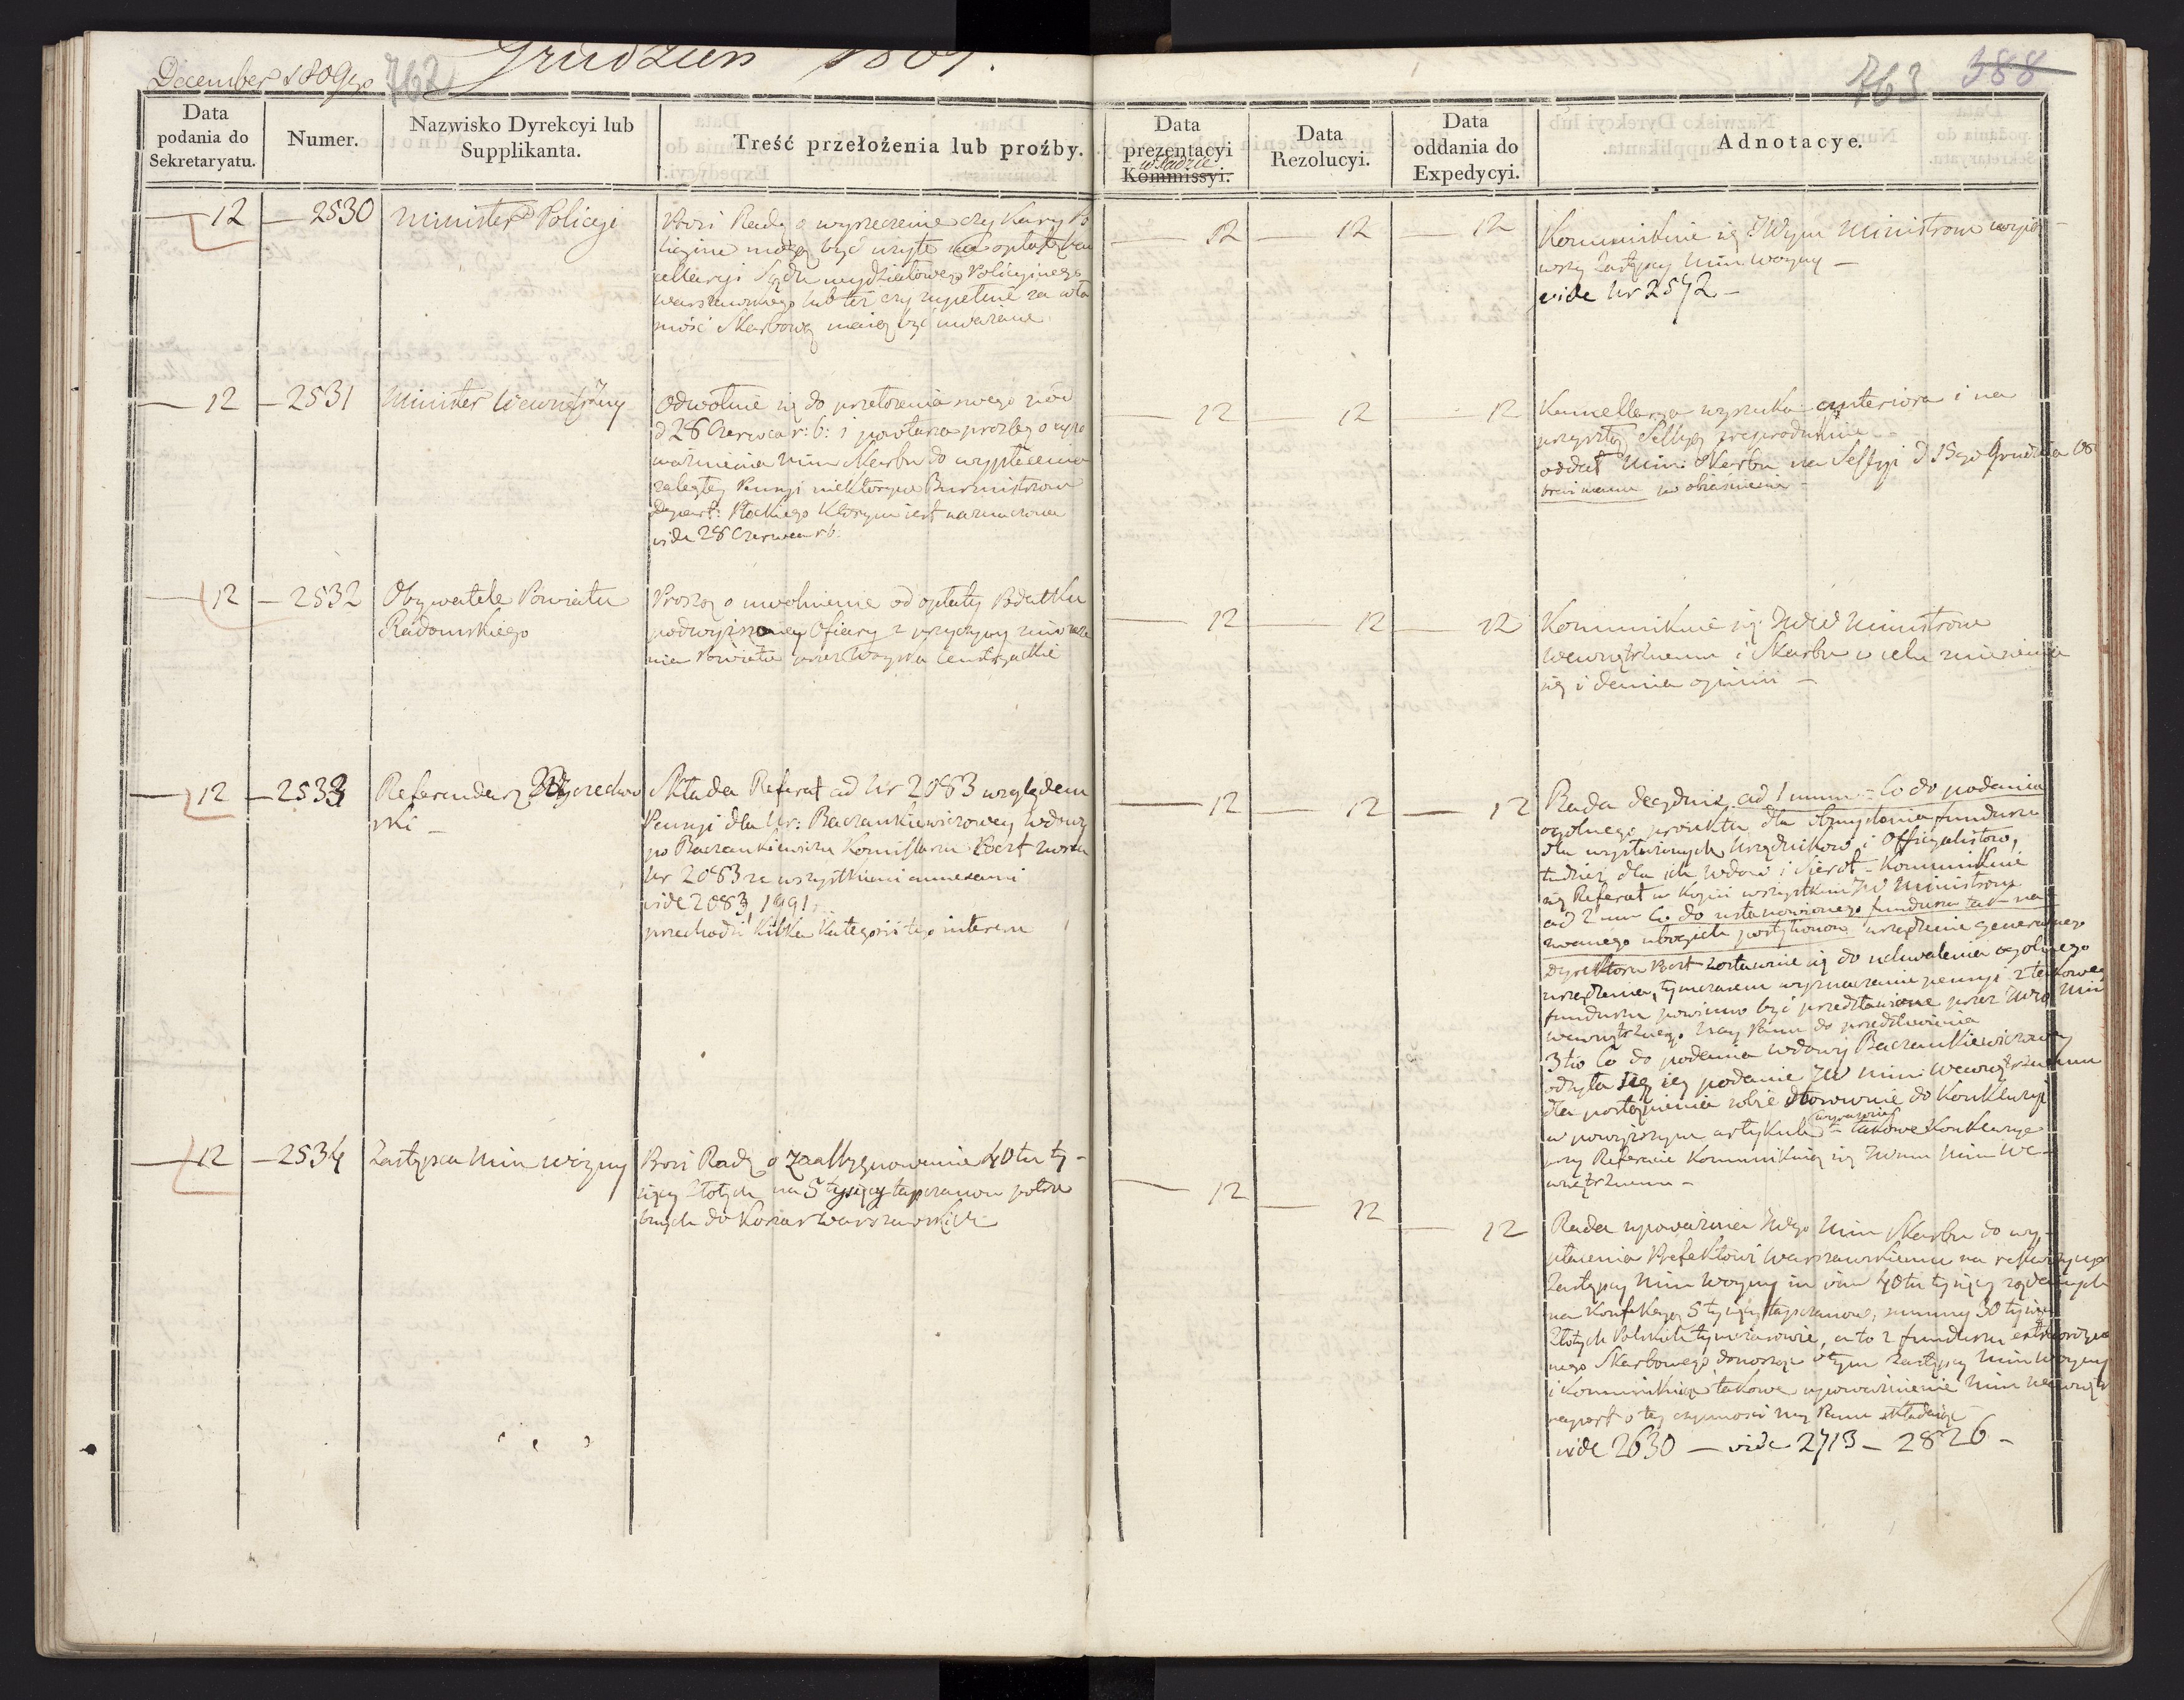 Grudzień 1809.
December 1809go 762
763 388
Data podania do Sekretaryatu.
Numer.
Nazwisko Dyrekcyi lub Supplikanta.
Treść przełożenia lub proźby.
Data prezentacyi w Radzie Kommissyi.
Data Rezolucyi.
Data oddania do Expedycyi.
Adnotacye.
12 — 2530 Minister Policyi
Prosi Radę o wyrzeczenie czy Kary Po
licyine mogą być użyte na opłatę Kan
cellaryi Sądu wydziałowego Policyinego
Warszawskiego lub też czy zupełnie za wła
sność Skarbową maią być uważane
12 12 12
Kommunikuie się JWym Ministrom wyią
wszy Zastępcy Min: Woyny —
vide Nr 2572 —
12 — 2531 Minister Wewnętrzny
Odwołuie się do przełożenia swego
d 28 Czerwca r: b: i powtarza prozbę o upo
ważnienie Min Skarbu do wypłacenia
zaległey Pensyi niektórym Burmistrzom
Depart: Płockiego którym iest naznaczona
vide 28 Czerwca r b.
12 12 12
Kancellarya wyszuka anteriora i na
przyszłey Sessyi
oddał Min: Skarbu na Sessyi d 15go Grudnia
brevi manu po obiaśnienie —
12 — 2532 Obywatele Powiatu
Radomskiego
Proszą o uwolnienie od opłaty Podatku
podwyższoney Ofiary z przyczyny zniszcze
nia Powiatu przez Woyska Austryackie
12 12 12
Kommunikuie się JWW Ministrom
Wewnętrznemu i Skarbu w celu zniesienia
się i dania opinii —
12 — 2533 Referendarz
ski —
Składa Referat ad Nr 2083 względem
Pensyi dla Ur: Baczankiewiczowey wdowy
po Baczankiewiczu Komissarzu Poczt zwraca
Nr 2083 ze wszystkiemi annexami
vide 2083, 1991,
przechodzi Kilka Kategorii tego interesu
12 12 12
Rada decyduie ad 1mum = Co do podania
ogólnego proiektu dla obmyślenia funduszu
dla wysłużonych Urzędników i Officyalistów,
tudzież dla ich Wdów i Sierot — Kommunikuie
się Referat w Kopii wszystkim JW Ministrom
ad 2um Co do ustanowionego funduszu tak na-
zwanego ubogich postylionów urządzenie Generalnego
Dyrektora Poczt zostawuie się do uchwalenia ogólnego
urządzenia, tymczasem wyznaczenie pensyi z takowego
funduszu powinno być przedstawione przez JWo Min
Wewnętrznego Nay Panu do przedstawienia
3tio Co do podania wdowy Baczankiewiczowey
odsyła się iey podanie JW Min: Wewnętrznemu
dla postąpienia sobie stosownie do Konkluzyi
w powyższym artykule = takowe Konkluzye
przy Referacie Kommunikuią się JWmu Min We-
wnętrznemu —
12 — 2534 Zastępca Min Woyny
Prosi Radę o zaassygnowanie 40tu ty-
sięcy Złotych na 5 tysięcy tapczanow potrze
bnych do Koszar Warszawskich
12 12 12
Rada upoważnia JWgo Min Skarbu do wy-
płacenia Prefektowi Warszawskiemu na rekwizycyą
Zastępcy Min Woyny in vim 40tu tysięcy żądanych
na Konfekcyą 5 tysięcy tapczanow, summy 30 tysięcy
Złotych Polskich tymczasowie, a to z funduszu extraordyna
nego Skarbowego donosząc o tym Zastępcy Min Woyny
i Kommunikuiąc takowe upoważnienie Min Wewnętr
raport o tey czynności Nay Panu składaiąc
vide 2630 — vide 2713 — 2826 —